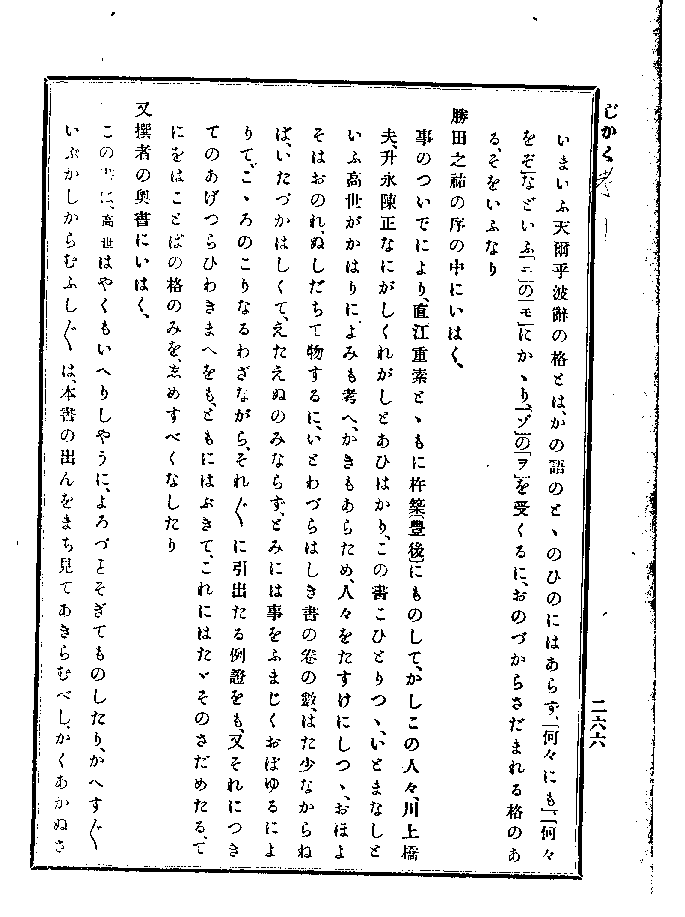 じかく考
二六六
いまいふ天爾乎波辭の格とは、かの語のとゝのひのにはあらず、「何々にも」「何々
をぞ」などいふ「ニ」の「モ」にかゝり、「ゾ」の「ヲ」を受くるに、おのづからさだまれる格のあ
る、そをいふなり
勝田之祐の序の中にいはく、
事のついでにより、直江重素とゝもに杵築(豊後)にものして、かしこの人々、川上橋
夫、升永陳正なにがしくれがしとあひはかり、この書こひとりつゝ、いとまなしと
いふ高世がかはりに、よみも考へ、かきもあらため、人々をたすけにしつゝ、おほよ
そはおのれ、ぬしだちて物するに、いとわづらはしき書の卷の數、はた少なからね
ば、いたづかはしくて、えたえぬのみならず、とみには事をふまじくおぼゆるによ
りて、こゝろのこりなるわざながら、それ〴〵に引出たる例證をも、又それにつき
てのあげつらひわきまへをも、ともにはぶきて、これにはたゞそのさだめたる、て
にをはことばの格のみを、ゑめすべくなしたり
又撰者の奥書にいはく、
このに、高世はやくもいへりしやうに、よろづことそぎてものしたり、かへす〴〵
いぶかしからむふし〴〵は、本書の出んをまち見てあきらむべし、かくあかぬさ